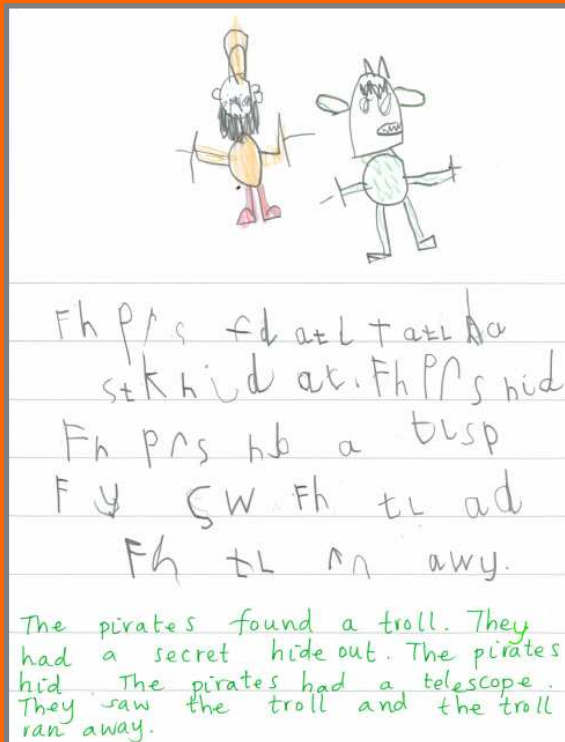 Fh Prs fd atL t atLL ha
stk hid at. Fh Prs hid
Fh Prs hb a tLsp
F y Sw Fh tL ad
Fh tL rn awy.
The pirates found a troll. They
had a secret hide out. The pirates
hid. The pirates had a telescope.
They saw the troll and the troll
ran away.